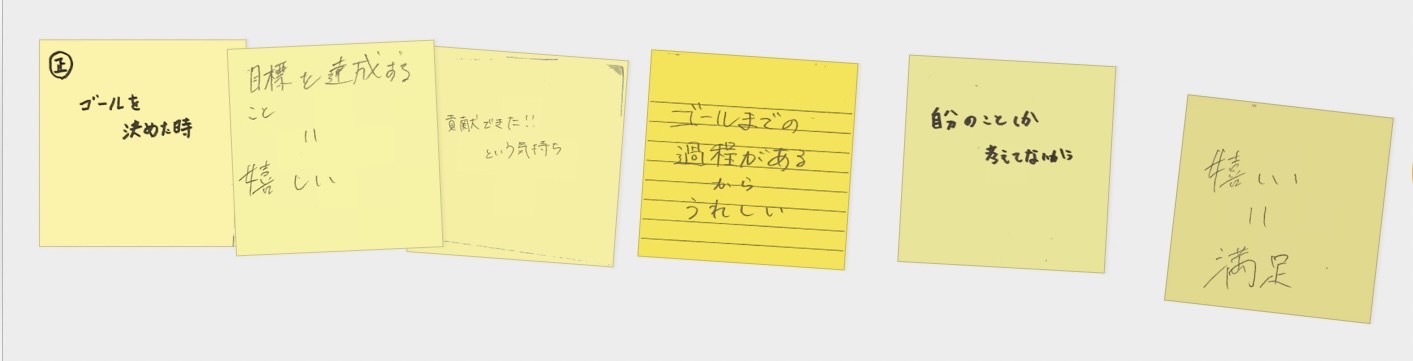 正
ゴールを
決めた時
目標を達成する
こと
=
嬉しい
貢献できた!!
という気持ち
ゴールまでの
過程がある
から
うれしい
自分のことしか
考えてないから
嬉しい
=
満足